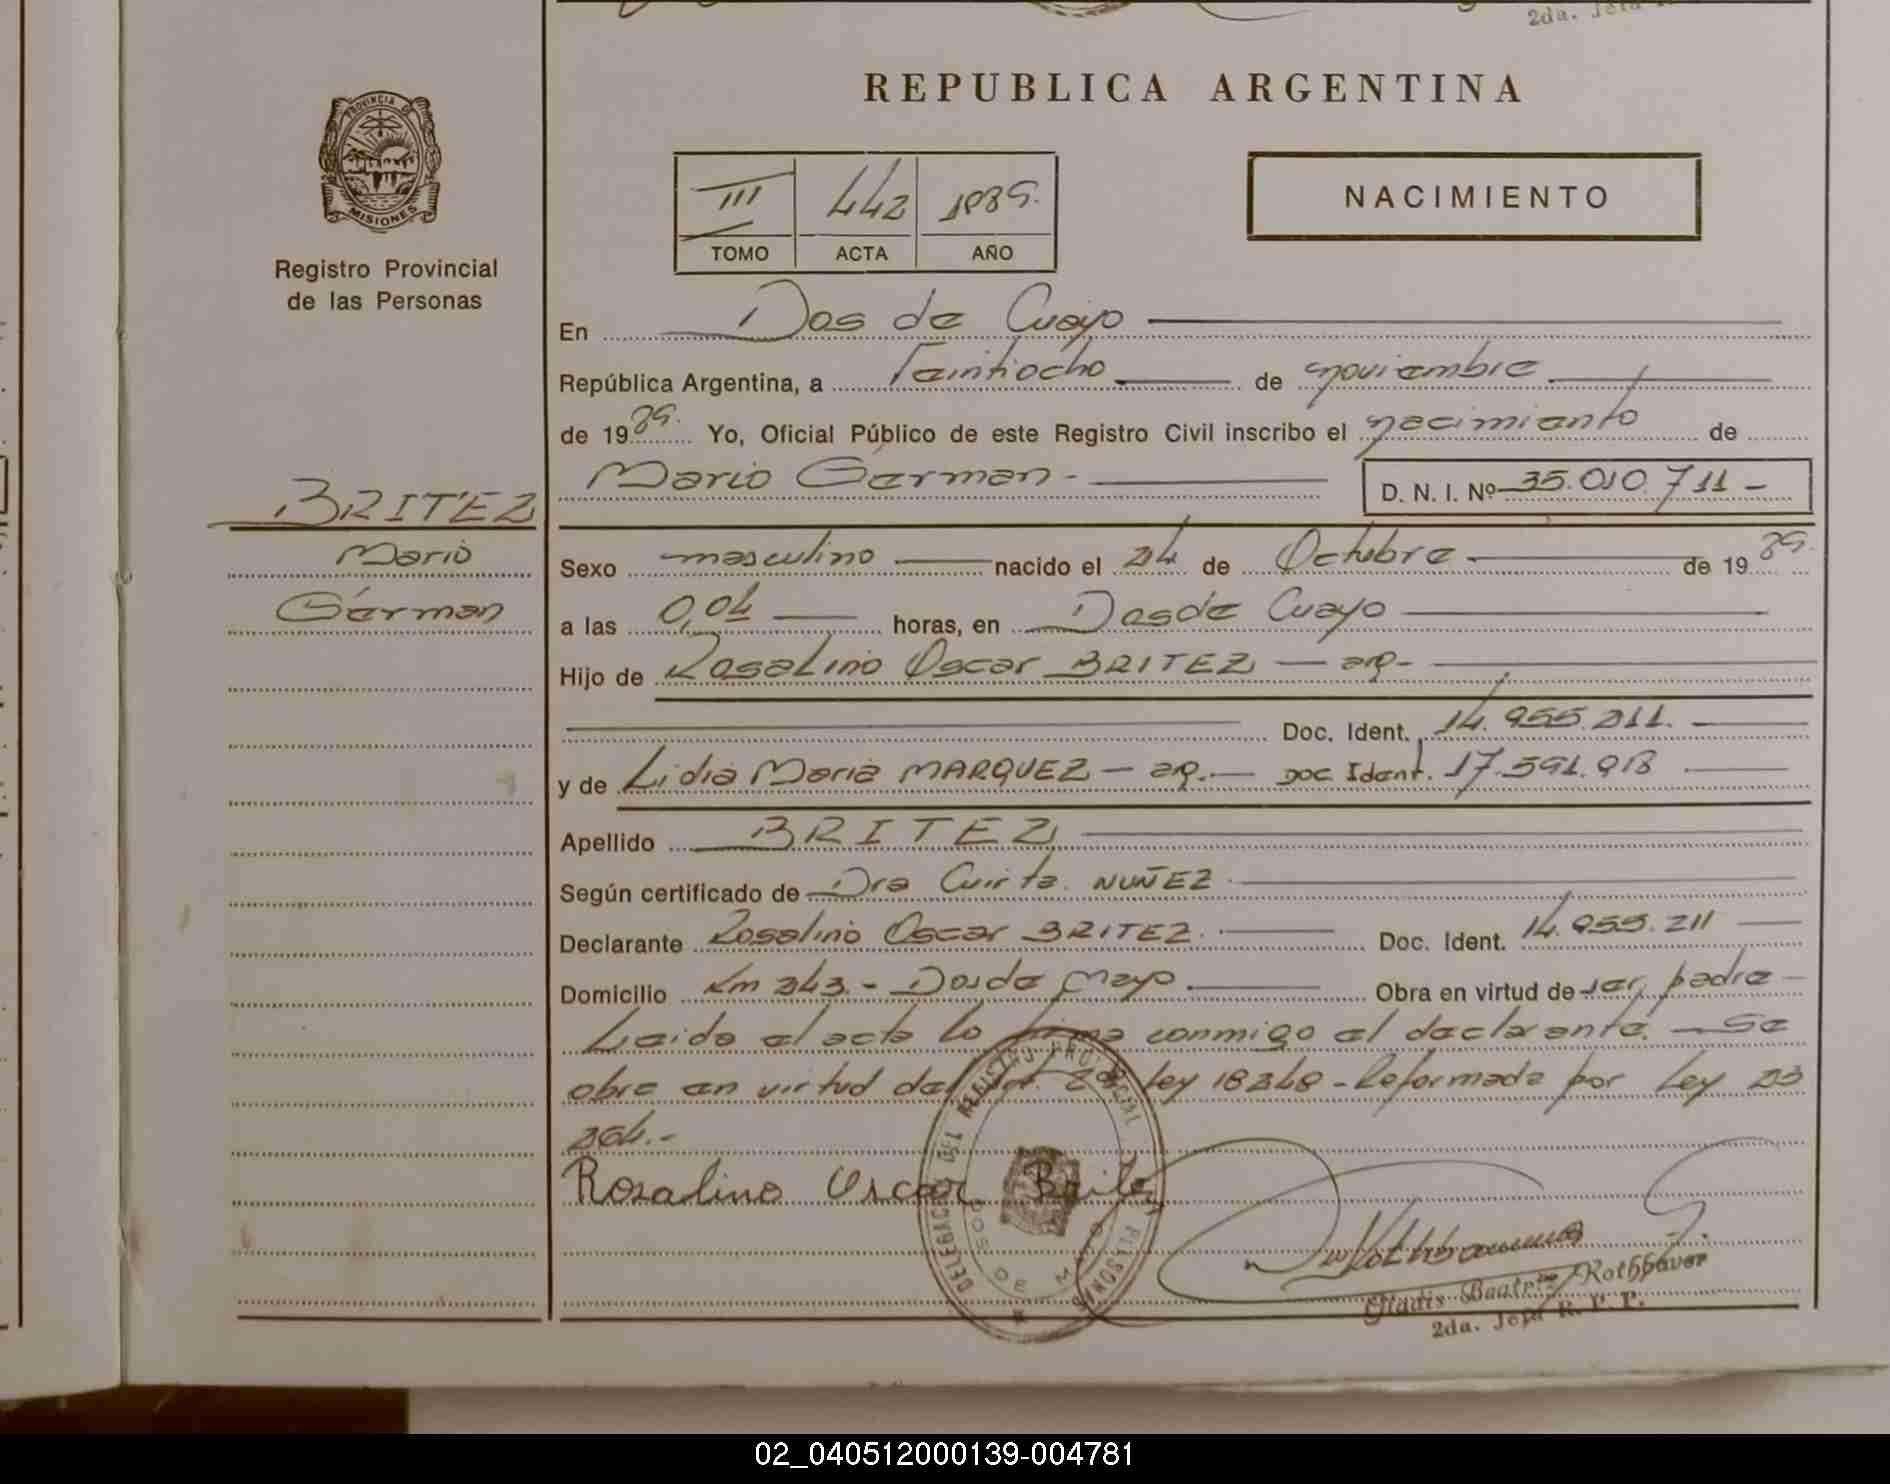 2da. Jefa
REPUBLICA ARGENTINA
PROVINCIA DE
MISIONES
Registro Provincial
de las Personas
III 442 1989.
TOMO ACTA AÑO
NACIMIENTO
En Dos de Mayo
República Argentina, a Veintiocho de noviembre
de 1989. Yo, Oficial Público de este Registro Civil inscribo el nacimiento de
Mario Germán - D. N. I. Nº 35.010.711 -
BRITEZ
Mario
Germán
Sexo masculino nacido el 24 de Octubre de 1989.
a las 0,04 horas, en Dos de Mayo
Hijo de Rosalino Oscar BRITEZ - arg -
Doc. Ident. 14.955.211.
y de Lidia Maria MARQUEZ - arg. - Doc Ident. 17.591.918
Apellido BRITEZ
Según certificado de Dra NUÑEZ
Declarante Rosalino Oscar BRITEZ. Doc. Ident. 14.955.211
Domicilio Km 243. - Dos de Mayo Obra en virtud de ser padre -
Leida el acta la firma conmigo el declarante. - Se
obra en virtud del Art. Ley 18248 - Reformada por Ley 23
264.-
Rosalino Oscar Britez
DELEGACION DEL REGISTRO PROVINCIAL DE LAS PERSONAS
DOS DE MAYO
Gladis Beatriz Rothbauer
2da. Jefa R. P. P.
02_040512000139-004781